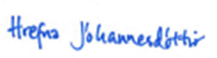 Hrefna Jóhannesdóttir